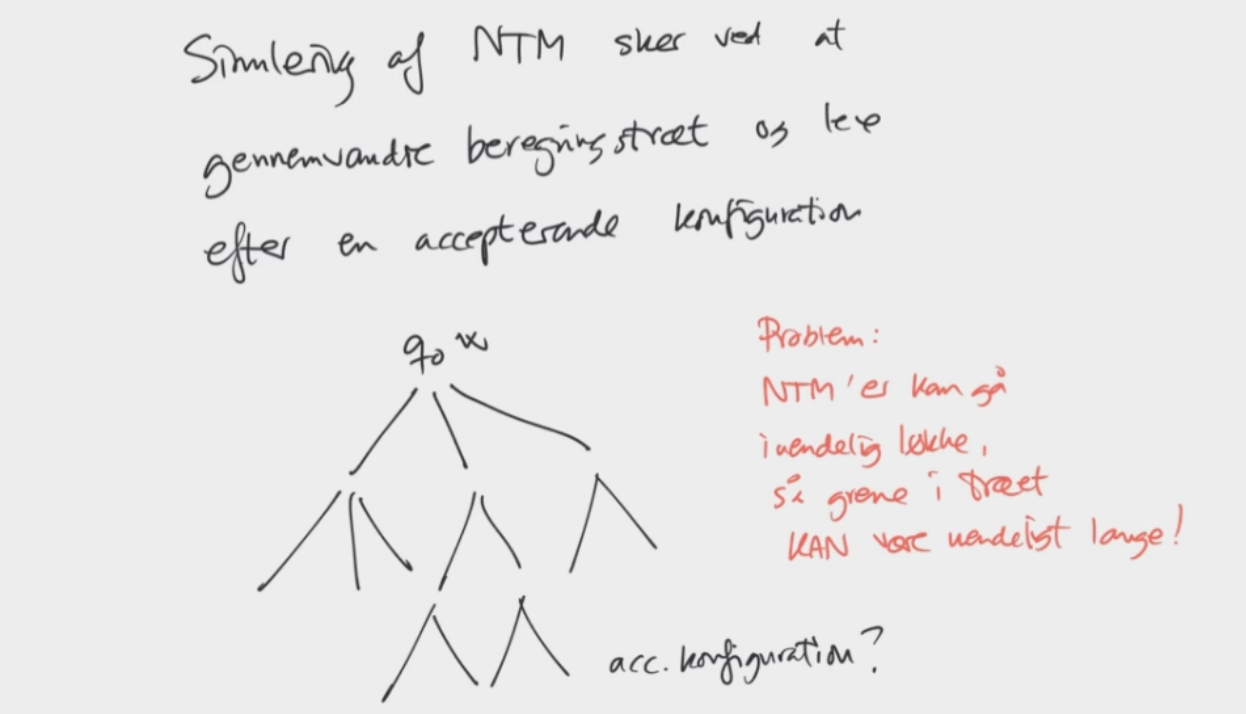 Simulering af NTM sker ved at
gennemvandre beregningstræet og lede
efter en accepterende konfiguration
q₀ w
Problem:
NTM'er kan gå
i uendelig løkke,
så grene i træet
KAN være uendeligt lange!
acc. konfiguration?